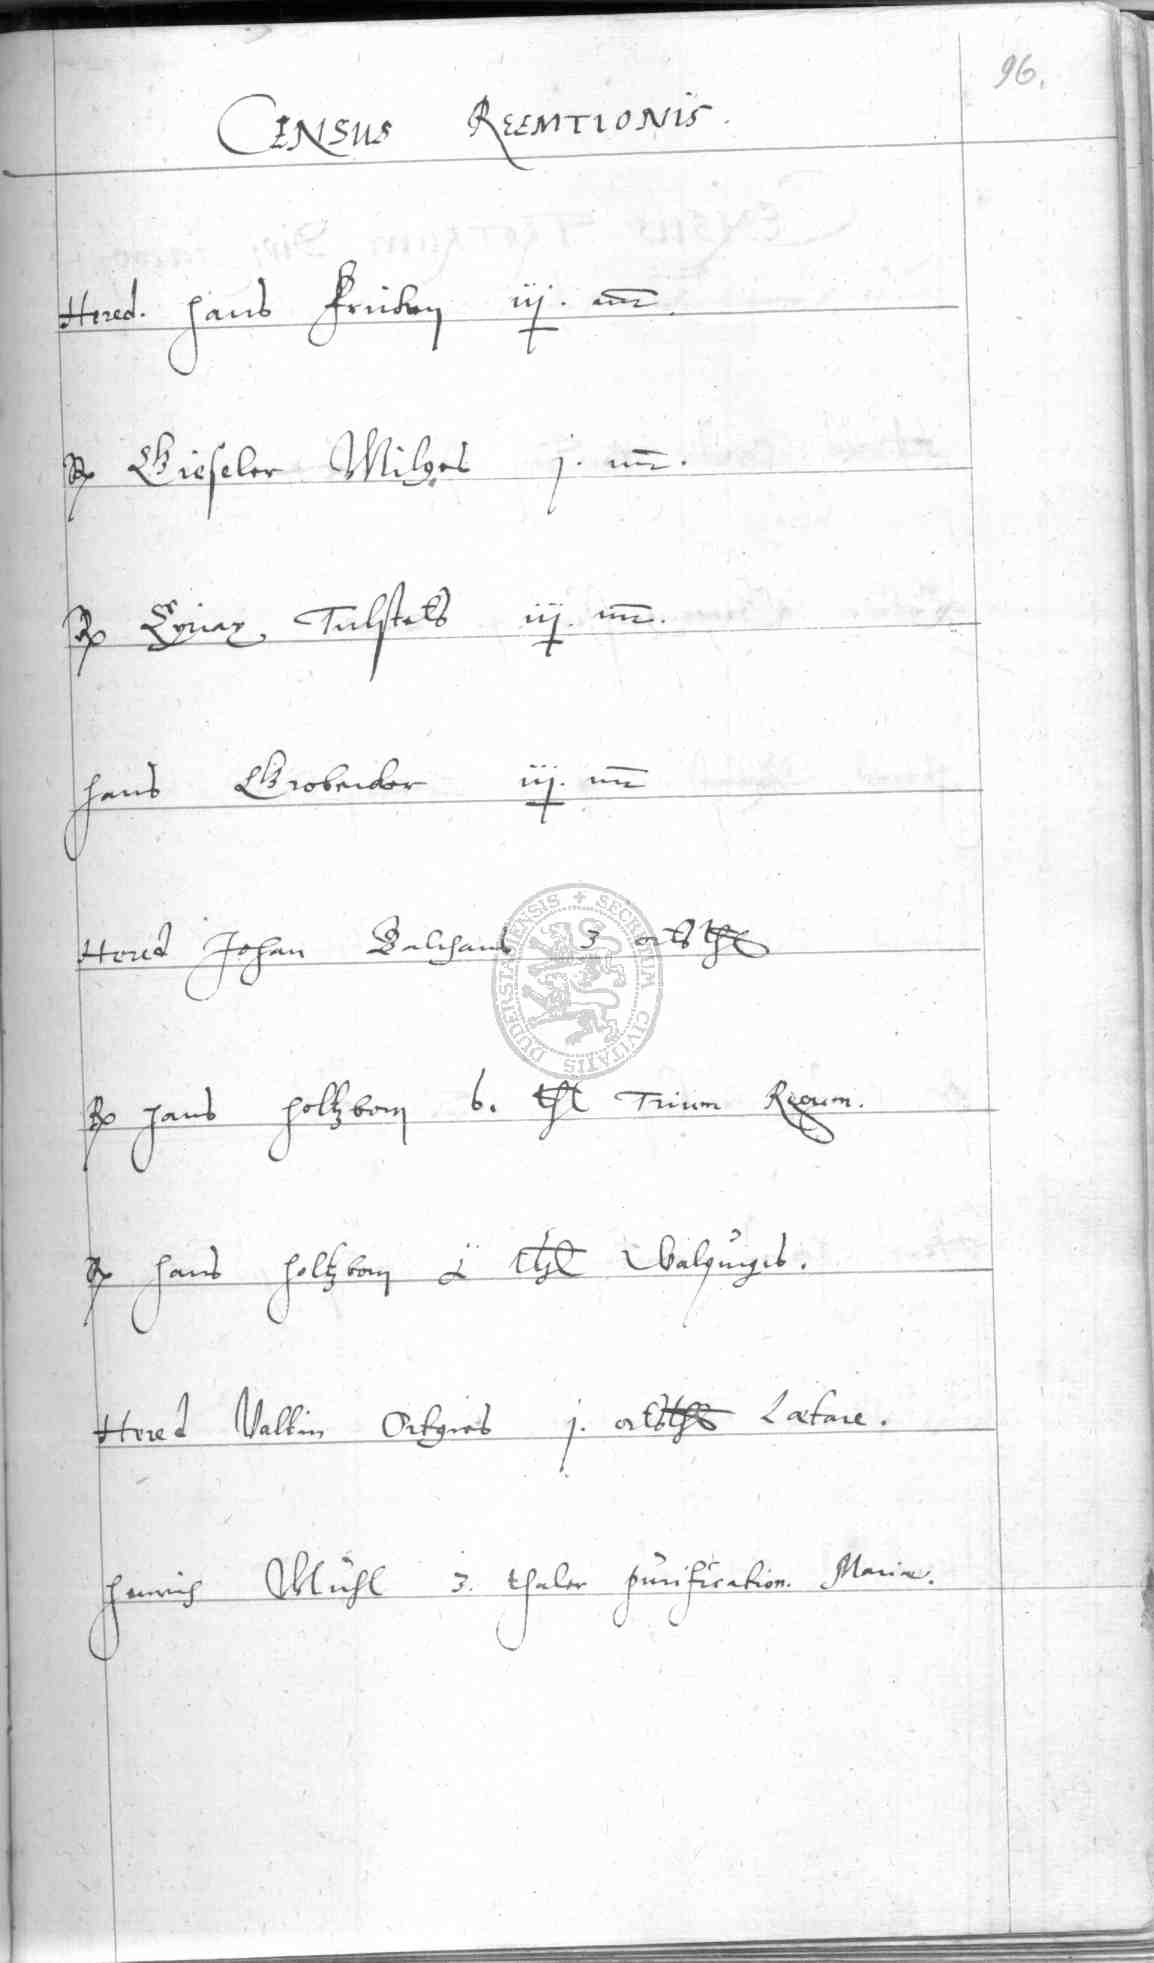 96.
CENSUS REEMTIONIS.
Hered. Hans iij.
Gieseler Milges j.
Ciriax Tulstets iij.
Hans Grobecker iij.
Hered Johan Balchans 3 orts thl
Hans Holtzborn 6. thl Trium Regum.
Hans Holtzborn thl Walpurgis.
Hered Valtin Ortgies j. orts thl Lætare.
Heinrich Mühl 3. thaler purification. Mariæ.
SECRETUM CIVITATIS DUDERSTADENSIS